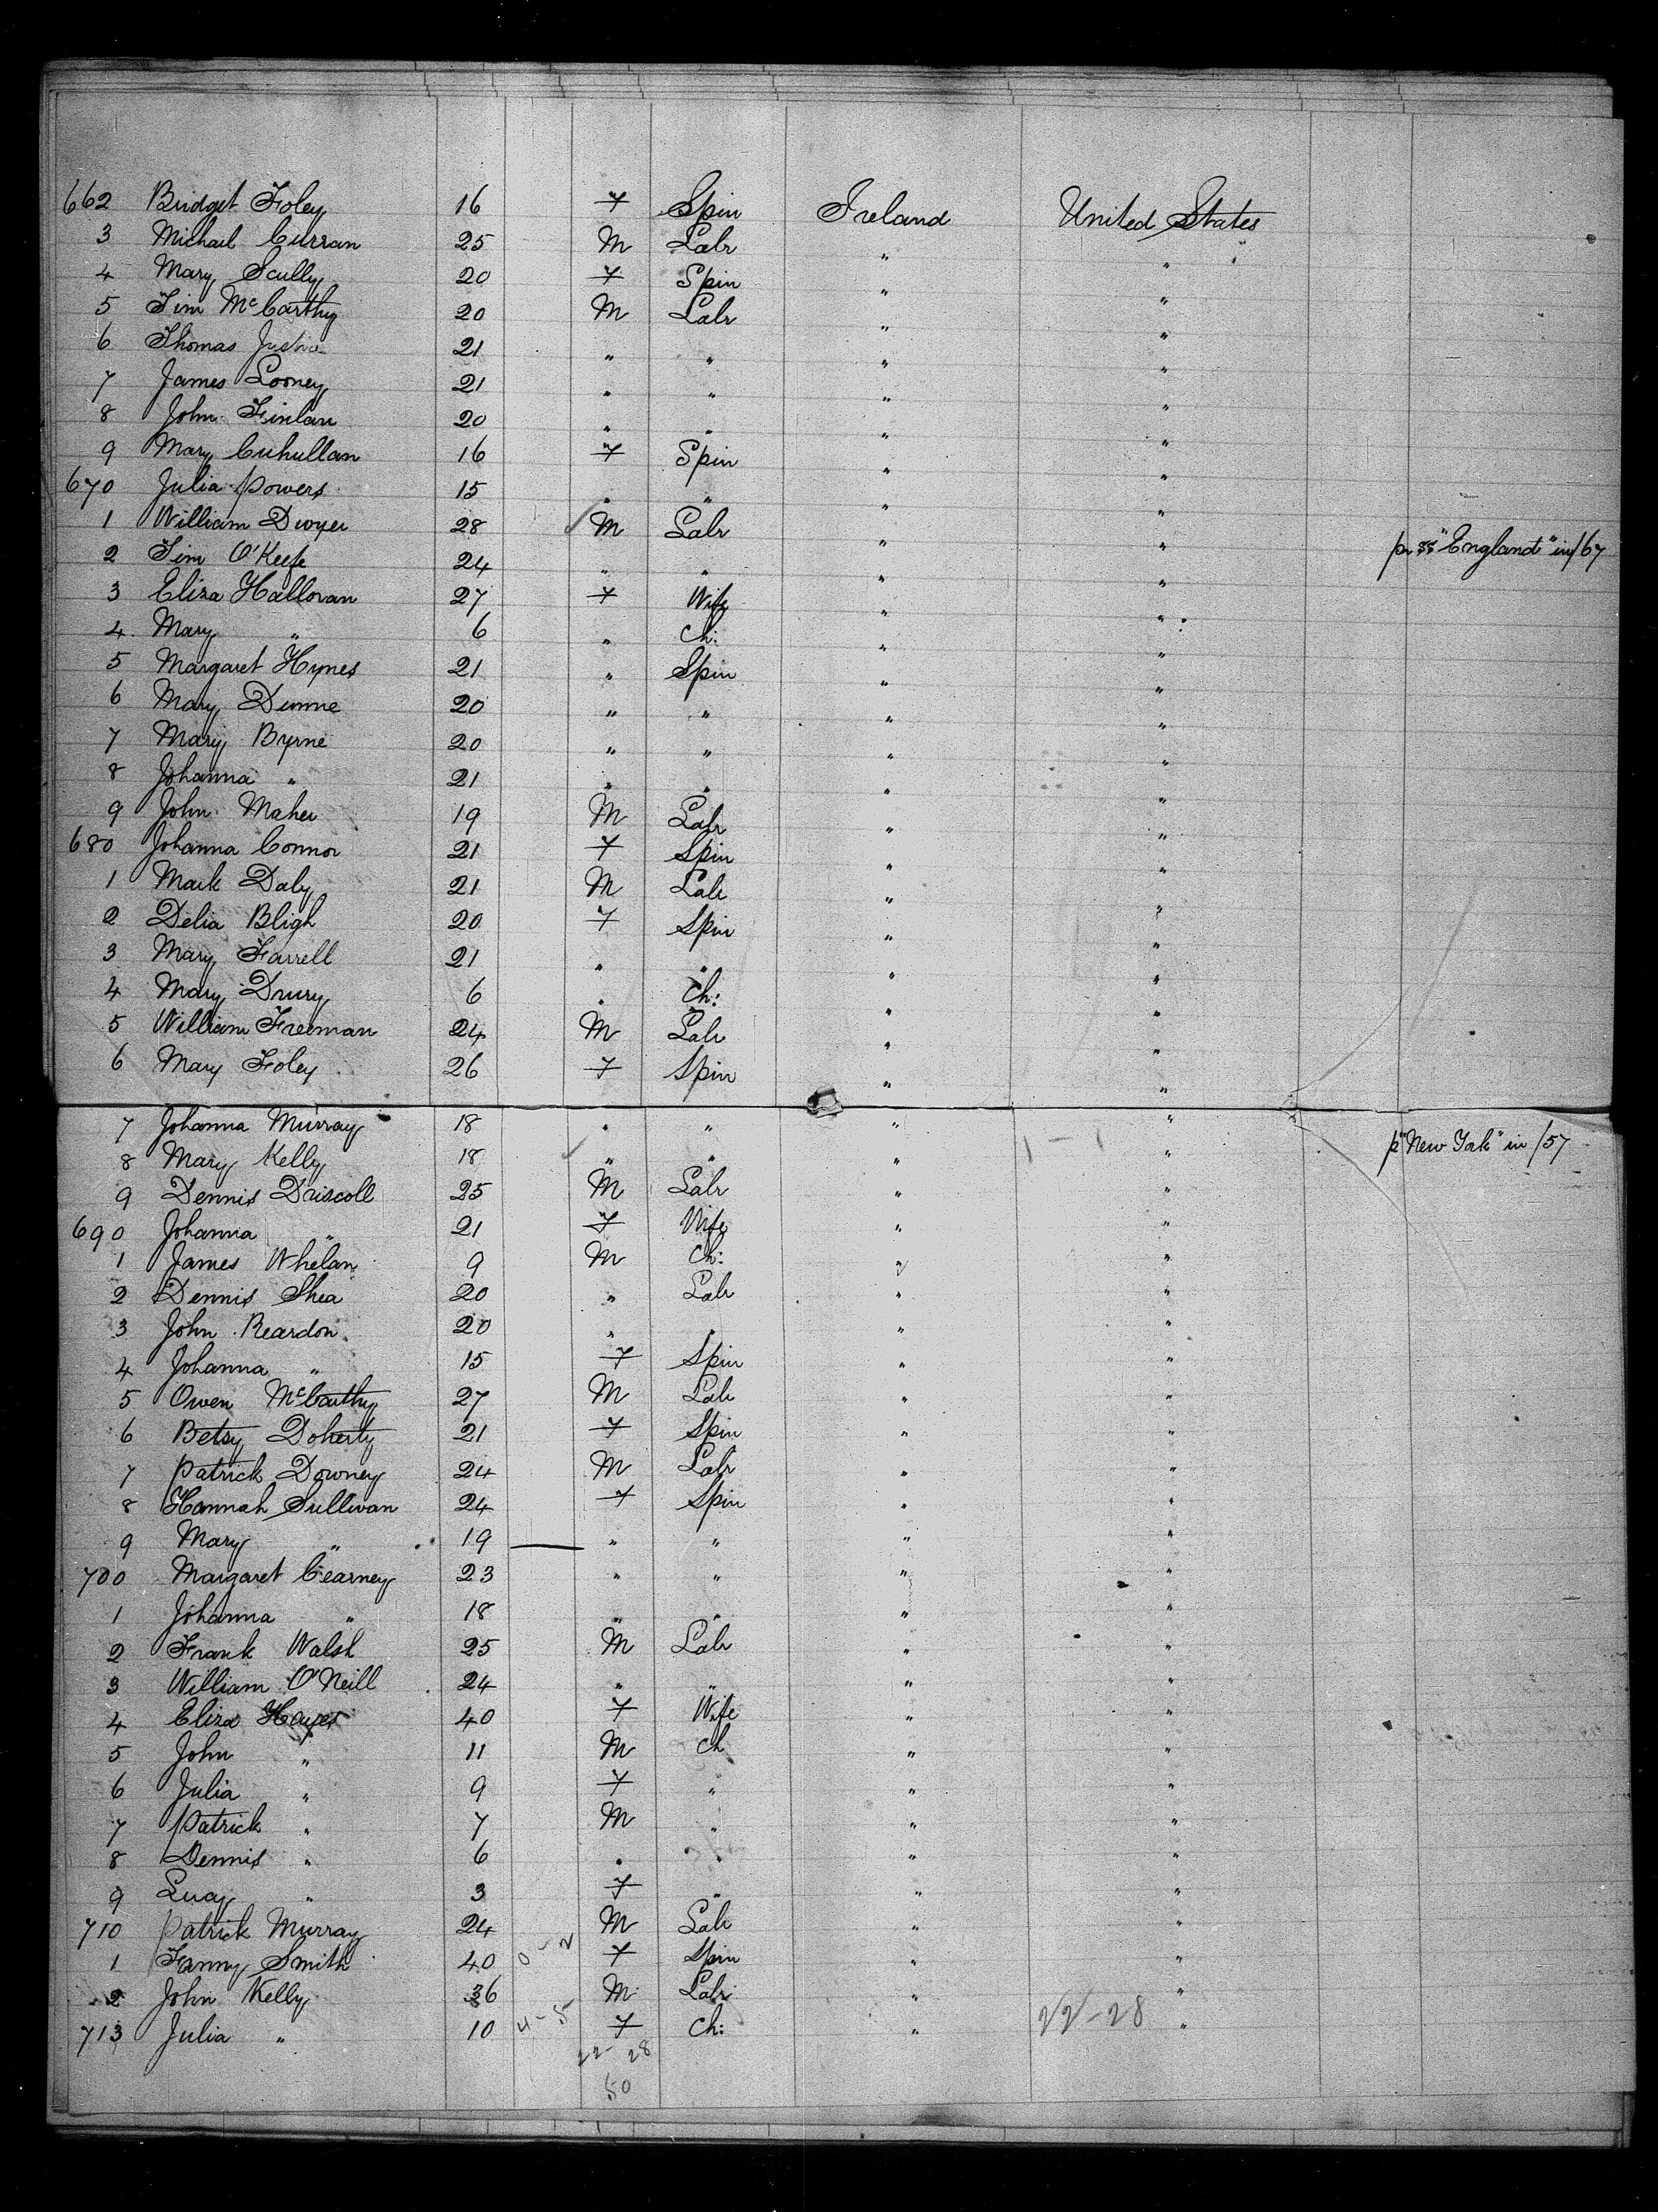 662 Bridget Foley 16 F Spin Ireland United States
3 Michael Curran 25 M Labr " "
4 Mary Scully 20 F Spin " "
5 Tim McCarthy 20 M Labr " "
6 Thomas Justice 21 " " " "
7 James Looney 21 " " " "
8 John Finlan 20 " " " "
9 Mary Cuhullan 16 F Spin " "
670 Julia Powers 15 " " " "
1 William Dwyer 28 M Labr " " pr SS "England" in /67
2 Tim O'Keefe 24 " " " "
3 Eliza Halloran 27 F Wife " "
4 Mary " 6 " Ch: " "
5 Margaret Hynes 21 " Spin " "
6 Mary Dunne 20 " " " "
7 Mary Byrne 20 " " " "
8 Johanna " 21 " " " "
9 John Maher 19 M Labr " "
680 Johanna Connor 21 F Spin " "
1 Mark Daly 21 M Labr " "
2 Delia Bligh 20 F Spin " "
3 Mary Farrell 21 " " " "
4 Mary Drury 6 " Ch: " "
5 William Freeman 24 M Labr " "
6 Mary Foley 26 F Spin " "
7 Johanna Murray 18 " " " "
8 Mary Kelly 18 " " " " p "New York" in /57
9 Dennis Driscoll 25 M Labr " "
690 Johanna " 21 F Wife " "
1 James Whelan 9 M Ch: " "
2 Dennis Shea 20 " Labr " "
3 John Reardon 20 " " " "
4 Johanna " 15 F Spin " "
5 Owen McCarthy 27 M Labr " "
6 Betsy Doherty 21 F Spin " "
7 Patrick Downey 24 M Labr " "
8 Hannah Sullivan 24 F Spin " "
9 Mary " 19 " " " "
700 Margaret Cearney 23 " " " "
1 Johanna " 18 " " " "
2 Frank Walsh 25 M Labr " "
3 William O'Neill 24 " " " "
4 Eliza Hayes 40 F Wife " "
5 John " 11 M Ch " "
6 Julia " 9 F " " "
7 Patrick " 7 M " " "
8 Dennis " 6 " " " "
9 Lucy " 3 F " " "
710 Patrick Murray 24 M Labr " "
1 Fanny Smith 40 0-2 F Spin " "
2 John Kelly 36 M Labr " "
713 Julia " 10 4-5 F Ch: " 22-28 "
22-28
50